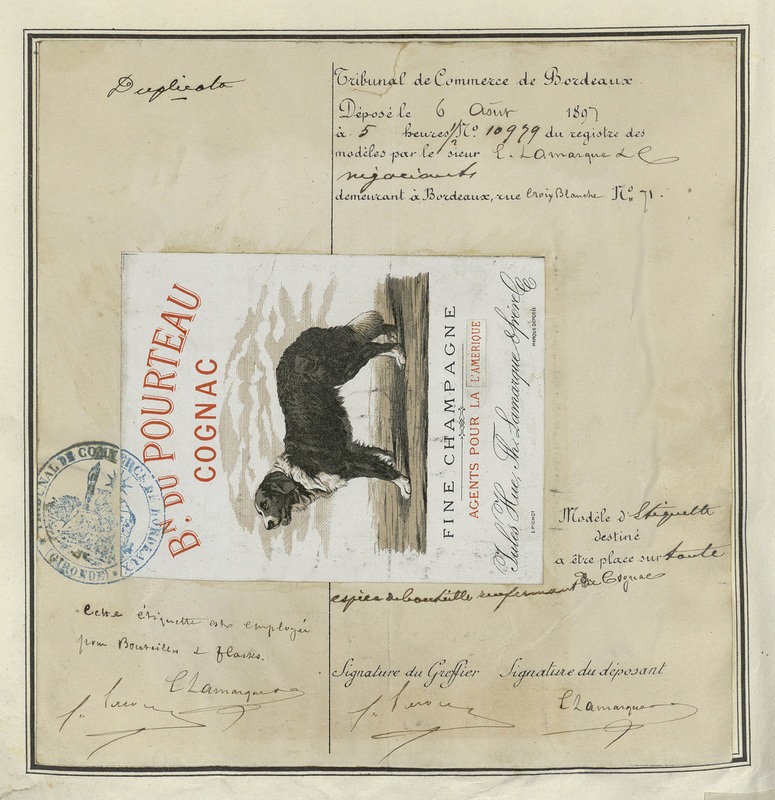 Duplicata
Tribunal de Commerce de Bordeaux.
Déposé le 6 Août 1897
à 5 heures Nº 10979 du registre des
modèles par le sieur E. Lamarque & C
négociants
demeurant à Bordeaux, rue Croix Blanche Nº 71.
Bᴺ DU POURTEAU
COGNAC
FINE CHAMPAGNE
AGENTS POUR LA L'AMERIQUE
Jules Hue, Th. Lamarque & frère & Cie
MARQUE DÉPOSÉE
E. PICHOT
TRIBUNAL DE COMMERCE DE BORDEAUX
(GIRONDE)
Modèle d'Etiquette
destiné
a être place sur toute
espèce de bouteille renfermant du Cognac
Cette étiquette est employée
pour Bouteilles & flasks.
Signature du Greffier Signature du déposant
E Lamarque
E Lamarque